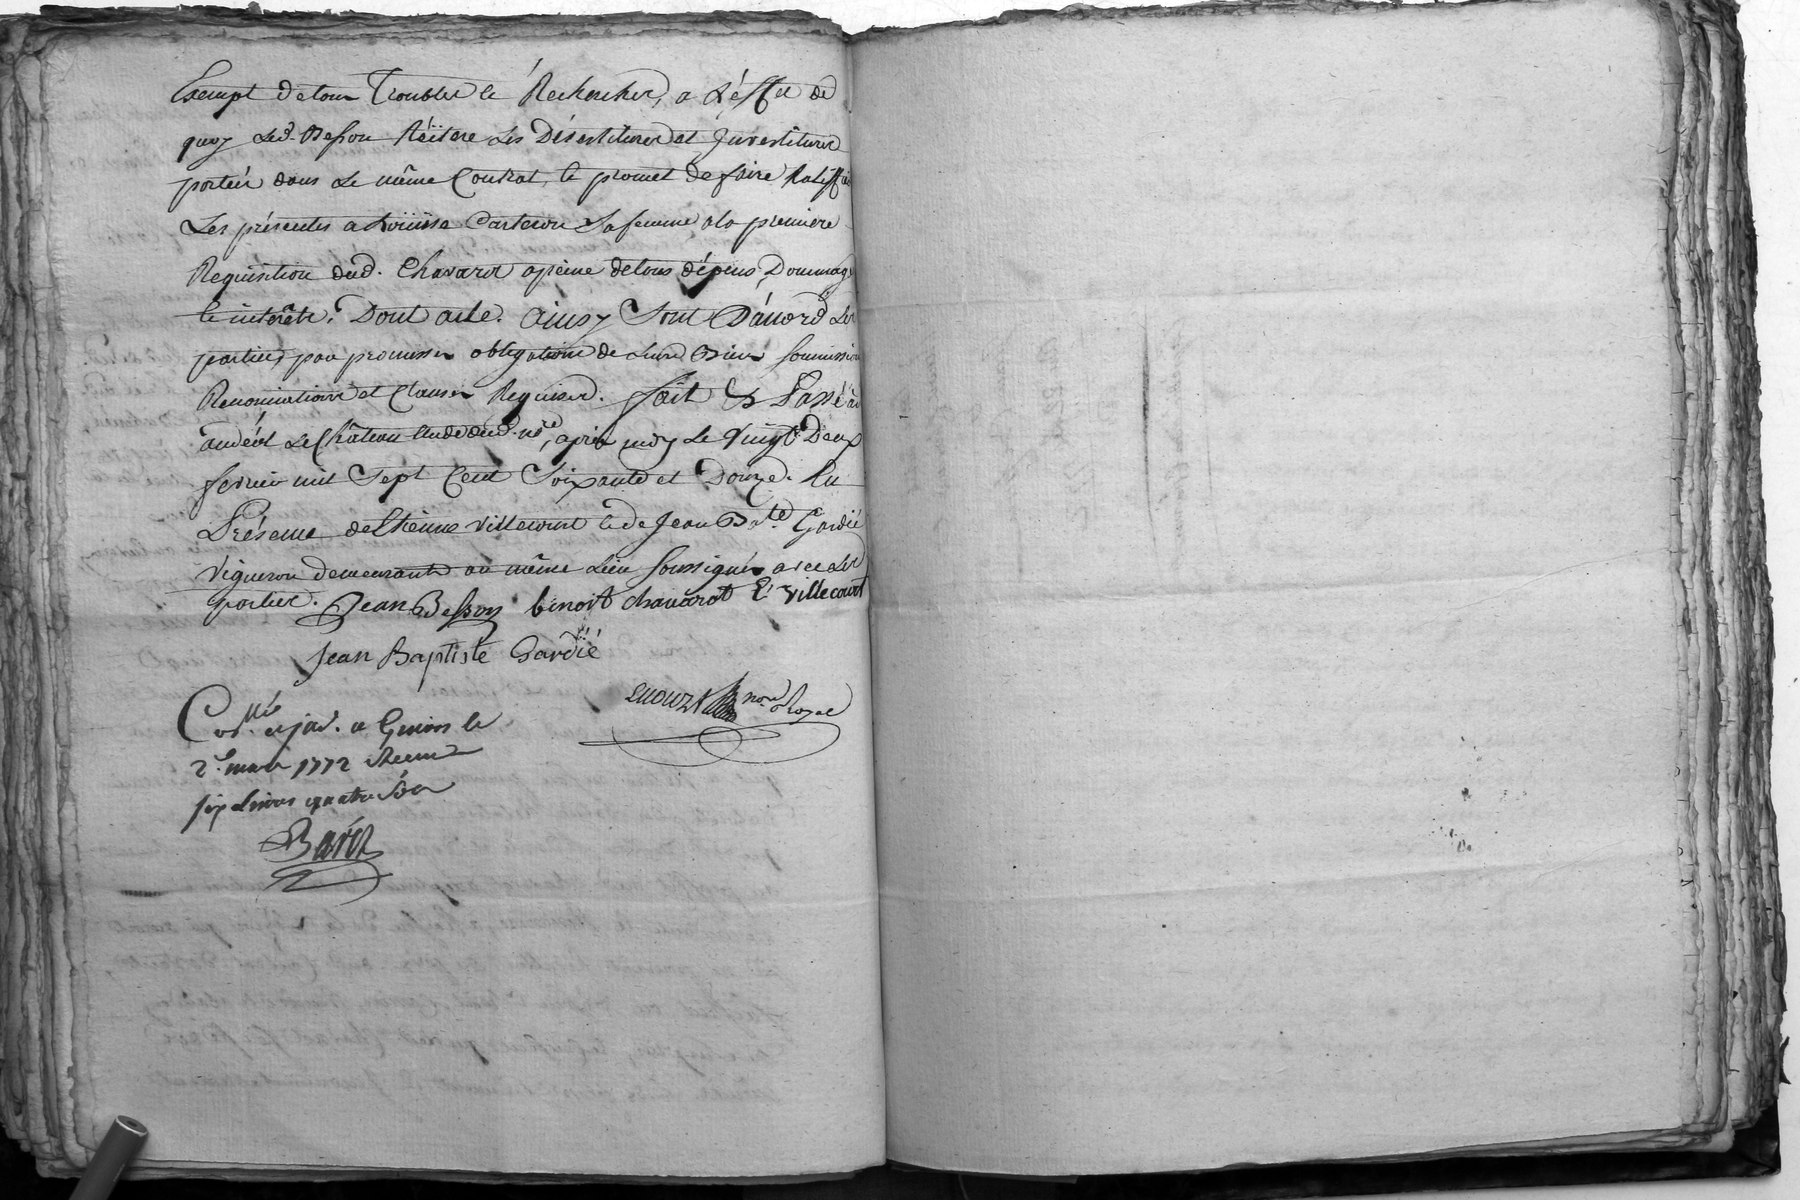 Exempt de tous Troubles & Recherches, a L'éffet de
quoy Led. Besson Réitere Les Désestitures et Jnvestitures
portées dans Le même Contrat, & promet de faire Ratiffier
Les présentes a Loüise Carteron Sa femme a la premiere
Requisition dud. Chavarot apeine de tous dépens, Dommages
& intérêts, Dont acte. Ainsy Sont D'acord Les
parties, par promesses obligations de Leurs Biens Soumissions
Renonciations et Clauses Requises. fait & Passé a
andéol Le Château Etude dud. nre, après midy Le Vingt Deux
fevrier mil Sept Cent Soixante et Douze. En
Présence de Etienne Villecourt & de Jean Bate. Gardié
Vigneron demeurants au même Lieu Soussignés avec Les
parties. Jean Besson benoit chavarot E villecourt
Jean Baptiste Gardié
nore Royal
Collé. a Givors le
2e. mars 1772 Reçu
six Livres quatre Sols
Baret